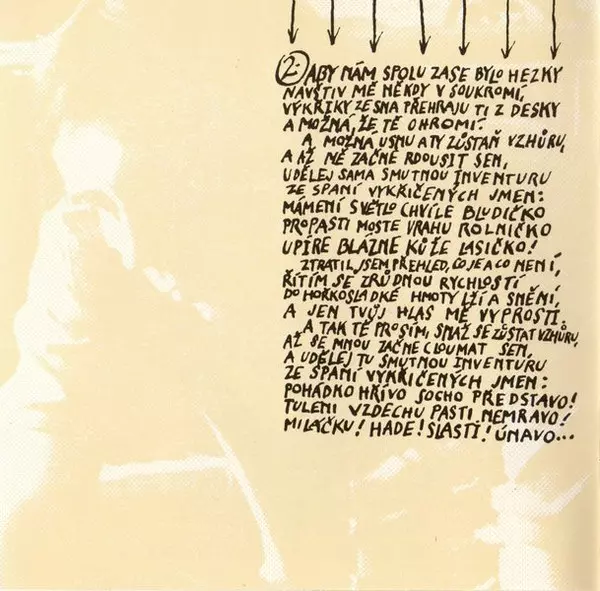 2. ABY NÁM SPOLU ZASE BYLO HEZKY
NAVŠTIV MĚ NĚKDY V SOUKROMÍ,
VÝKŘIKY ZE SNA PŘEHRAJU TI Z DESKY
A MOŽNÁ, ŽE TĚ OHROMÍ.
A MOŽNÁ USNU A TY ZŮSTAŇ VZHŮRU,
A AŽ MĚ ZAČNE RDOUSIT SEN,
UDĚLEJ SAMA SMUTNOU INVENTURU
ZE SPANÍ VYKŘIČENÝCH JMEN:
MÁMENÍ SVĚTLO CHVÍLE BLUDIČKO
PROPASTI MOSTE VRAHU ROLNIČKO
UPÍRE BLÁZNE KŮŽE LASIČKO!
ZTRATIL JSEM PŘEHLED, CO JE A CO NENÍ,
ŘÍTÍM SE ZRŮDNOU RYCHLOSTÍ
DO HOŘKOSLADKÉ HMOTY LŽÍ A SNĚNÍ,
A JEN TVŮJ HLAS MĚ VYPROSTÍ.
A TAK TĚ PROSÍM, SNAŽ SE ZŮSTAT VZHŮRU,
AŽ SE MNOU ZAČNE CLOUMAT SEN,
A UDĚLEJ TU SMUTNOU INVENTURU
ZE SPANÍ VYKŘIČENÝCH JMEN:
POHÁDKO HŘÍVO SOCHO PŘEDSTAVO!
TULENI VZDECHU PASTI NEMRAVO!
MILÁČKU! HADE! SLASTI! ÚNAVO...